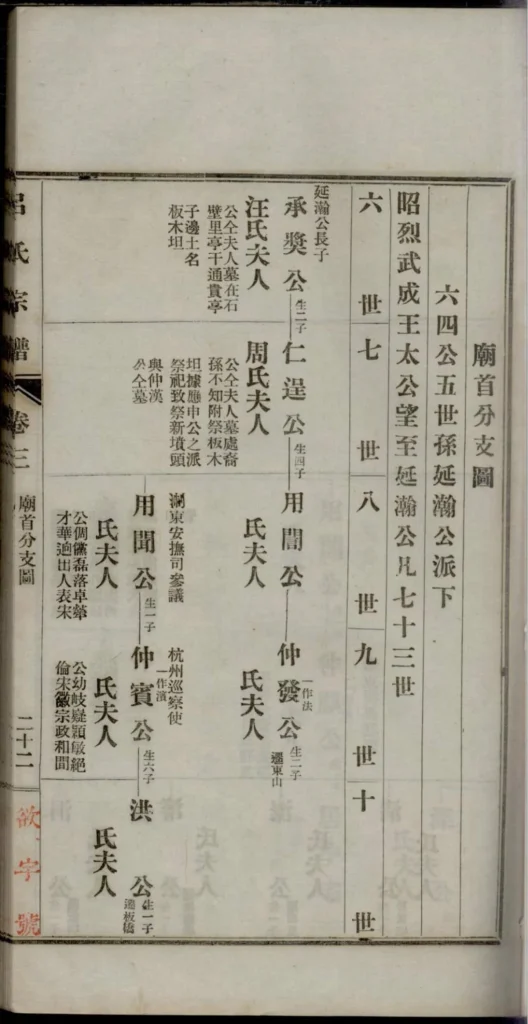 廟首分支圖
六四公五世孫延瀚公派下
昭烈武成王太公望至延瀚公凡七十三世
六世
七世
八世
九世
十世
延瀚公長子
承奬公
生二子
汪氏夫人
公仝夫人墓在石
壁里亭干通貴亭
子邊土名
板木坦
仁逞公
生四子
周氏夫人
公仝夫人墓處裔
孫不知附祭板木
坦據廳申公之派
祭祀致祭新墳頭
與仲漢
公仝墓
用誾公
氏夫人
仲發公
一作法
生二子
遷東山
氏夫人
浙東安撫司參議
用聞公
生一子
氏夫人
公倜儻磊落卓犖
才華逈出人表宋
杭州巡察使
仲賓公
一作濱
生六子
氏夫人
公幼岐嶷頴敏絕
倫宋徽宗政和間
洪公
生一子
遷板橋
氏夫人
呂氏宗譜
卷三
廟首分支圖
二十二
欲字號